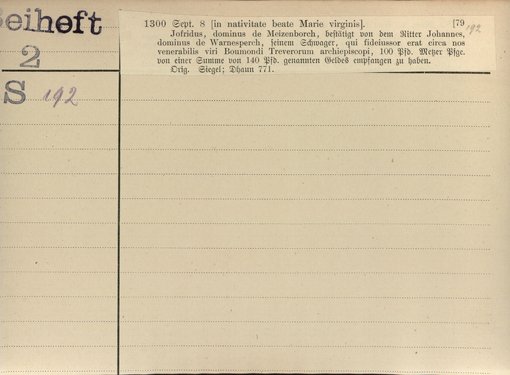 Beiheft
2
S 192
1300 Sept. 8 [in nativitate beate Marie virginis]. [79 192
Jofridus, dominus de Meizenborch, bestätigt von dem Ritter Johannes,
dominus de Warnesperch, seinem Schwager, qui fideiussor erat circa nos
venerabilis viri Boumondi Treverorum archiepiscopi, 100 Pfd. Metzer Pfge.
von einer Summe von 140 Pfd. genannten Geldes empfangen zu haben.
Orig. Siegel; Dhaun 771.